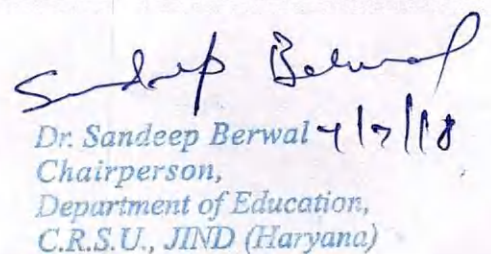 Sandeep Berwal
Dr. Sandeep Berwal 4/7/18
Chairperson,
Department of Education,
C.R.S.U., JIND (Haryana)